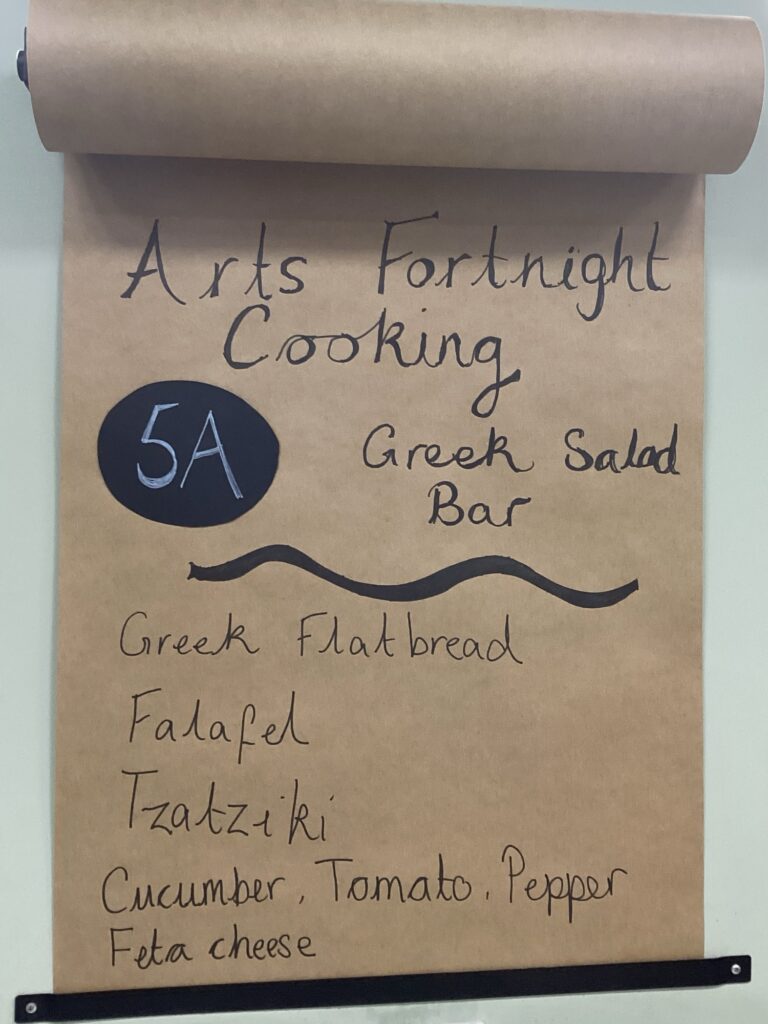 Arts Fortnight
Cooking
5A
Greek Salad
Bar
Greek Flatbread
Falafel
Tzatziki
Cucumber, Tomato, Pepper
Feta cheese